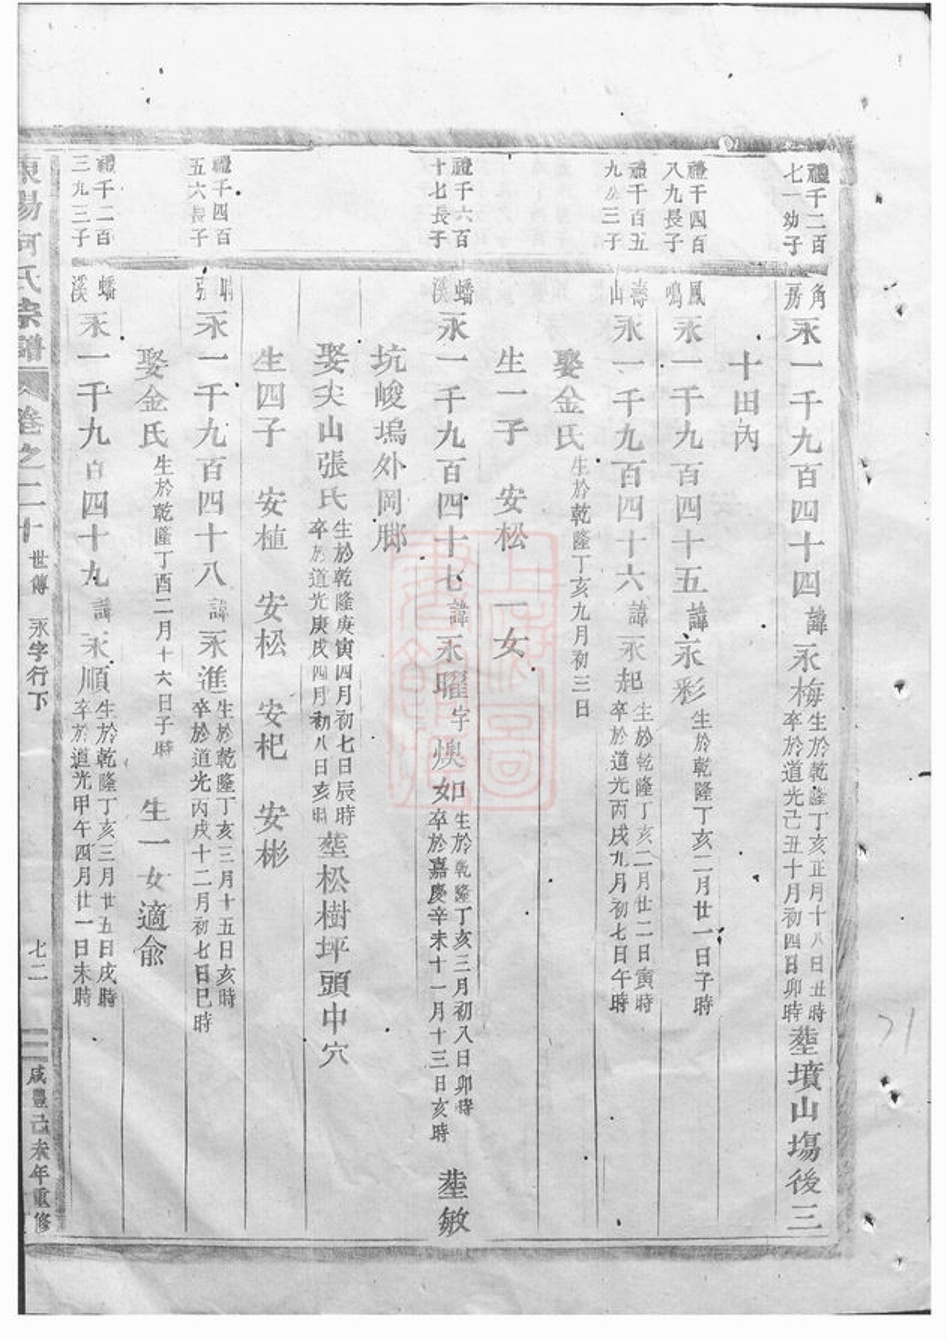 禮千二百
七一幼子
角
房
永一千九百四十四諱永梅
生於乾隆丁亥正月十八日丑時
卒於道光己丑十月初四日卯時
塟墳山塢後三
十田內
禮千四百
八九長子
鳳
鳴
永一千九百四十五諱永彩
生於乾隆丁亥二月廿一日子時
禮千百五
九三子
山
永一千九百四十六諱永起
生於乾隆丁亥二月廿二日寅時
卒於道光丙戌九月初七日午時
娶金氏
生於乾隆丁亥九月初三日
生一子 安松 一女
禮千六百
十七長子
蟠
溪
永一千九百四十七諱永曜字煥如
生於乾隆丁亥三月初入日卯時
卒於嘉慶辛未十一月十三日亥時
塟敏
坑峻塢外岡脚
娶尖山張氏
生於乾隆庚寅四月初七日辰時
卒於道光庚戌四月初八日亥時
塟松樹坪頭中穴
生四子 安植 安松 安杞 安彬
禮千四百
五六長子
永一千九百四十八諱永進
生於乾隆丁亥三月十五日亥時
卒於道光丙戌十二月初七日巳時
娶金氏
生於乾隆丁酉二月十六日子時
生一女適俞
禮千二百
三九三子
蟠
溪
永一千九百四十九諱永順
生於乾隆丁亥三月廿五日戌時
卒於道光甲午四月廿一日未時
東陽何氏宗譜 卷之二十 世傳 永字行下 七二 咸豐己未年重修
71